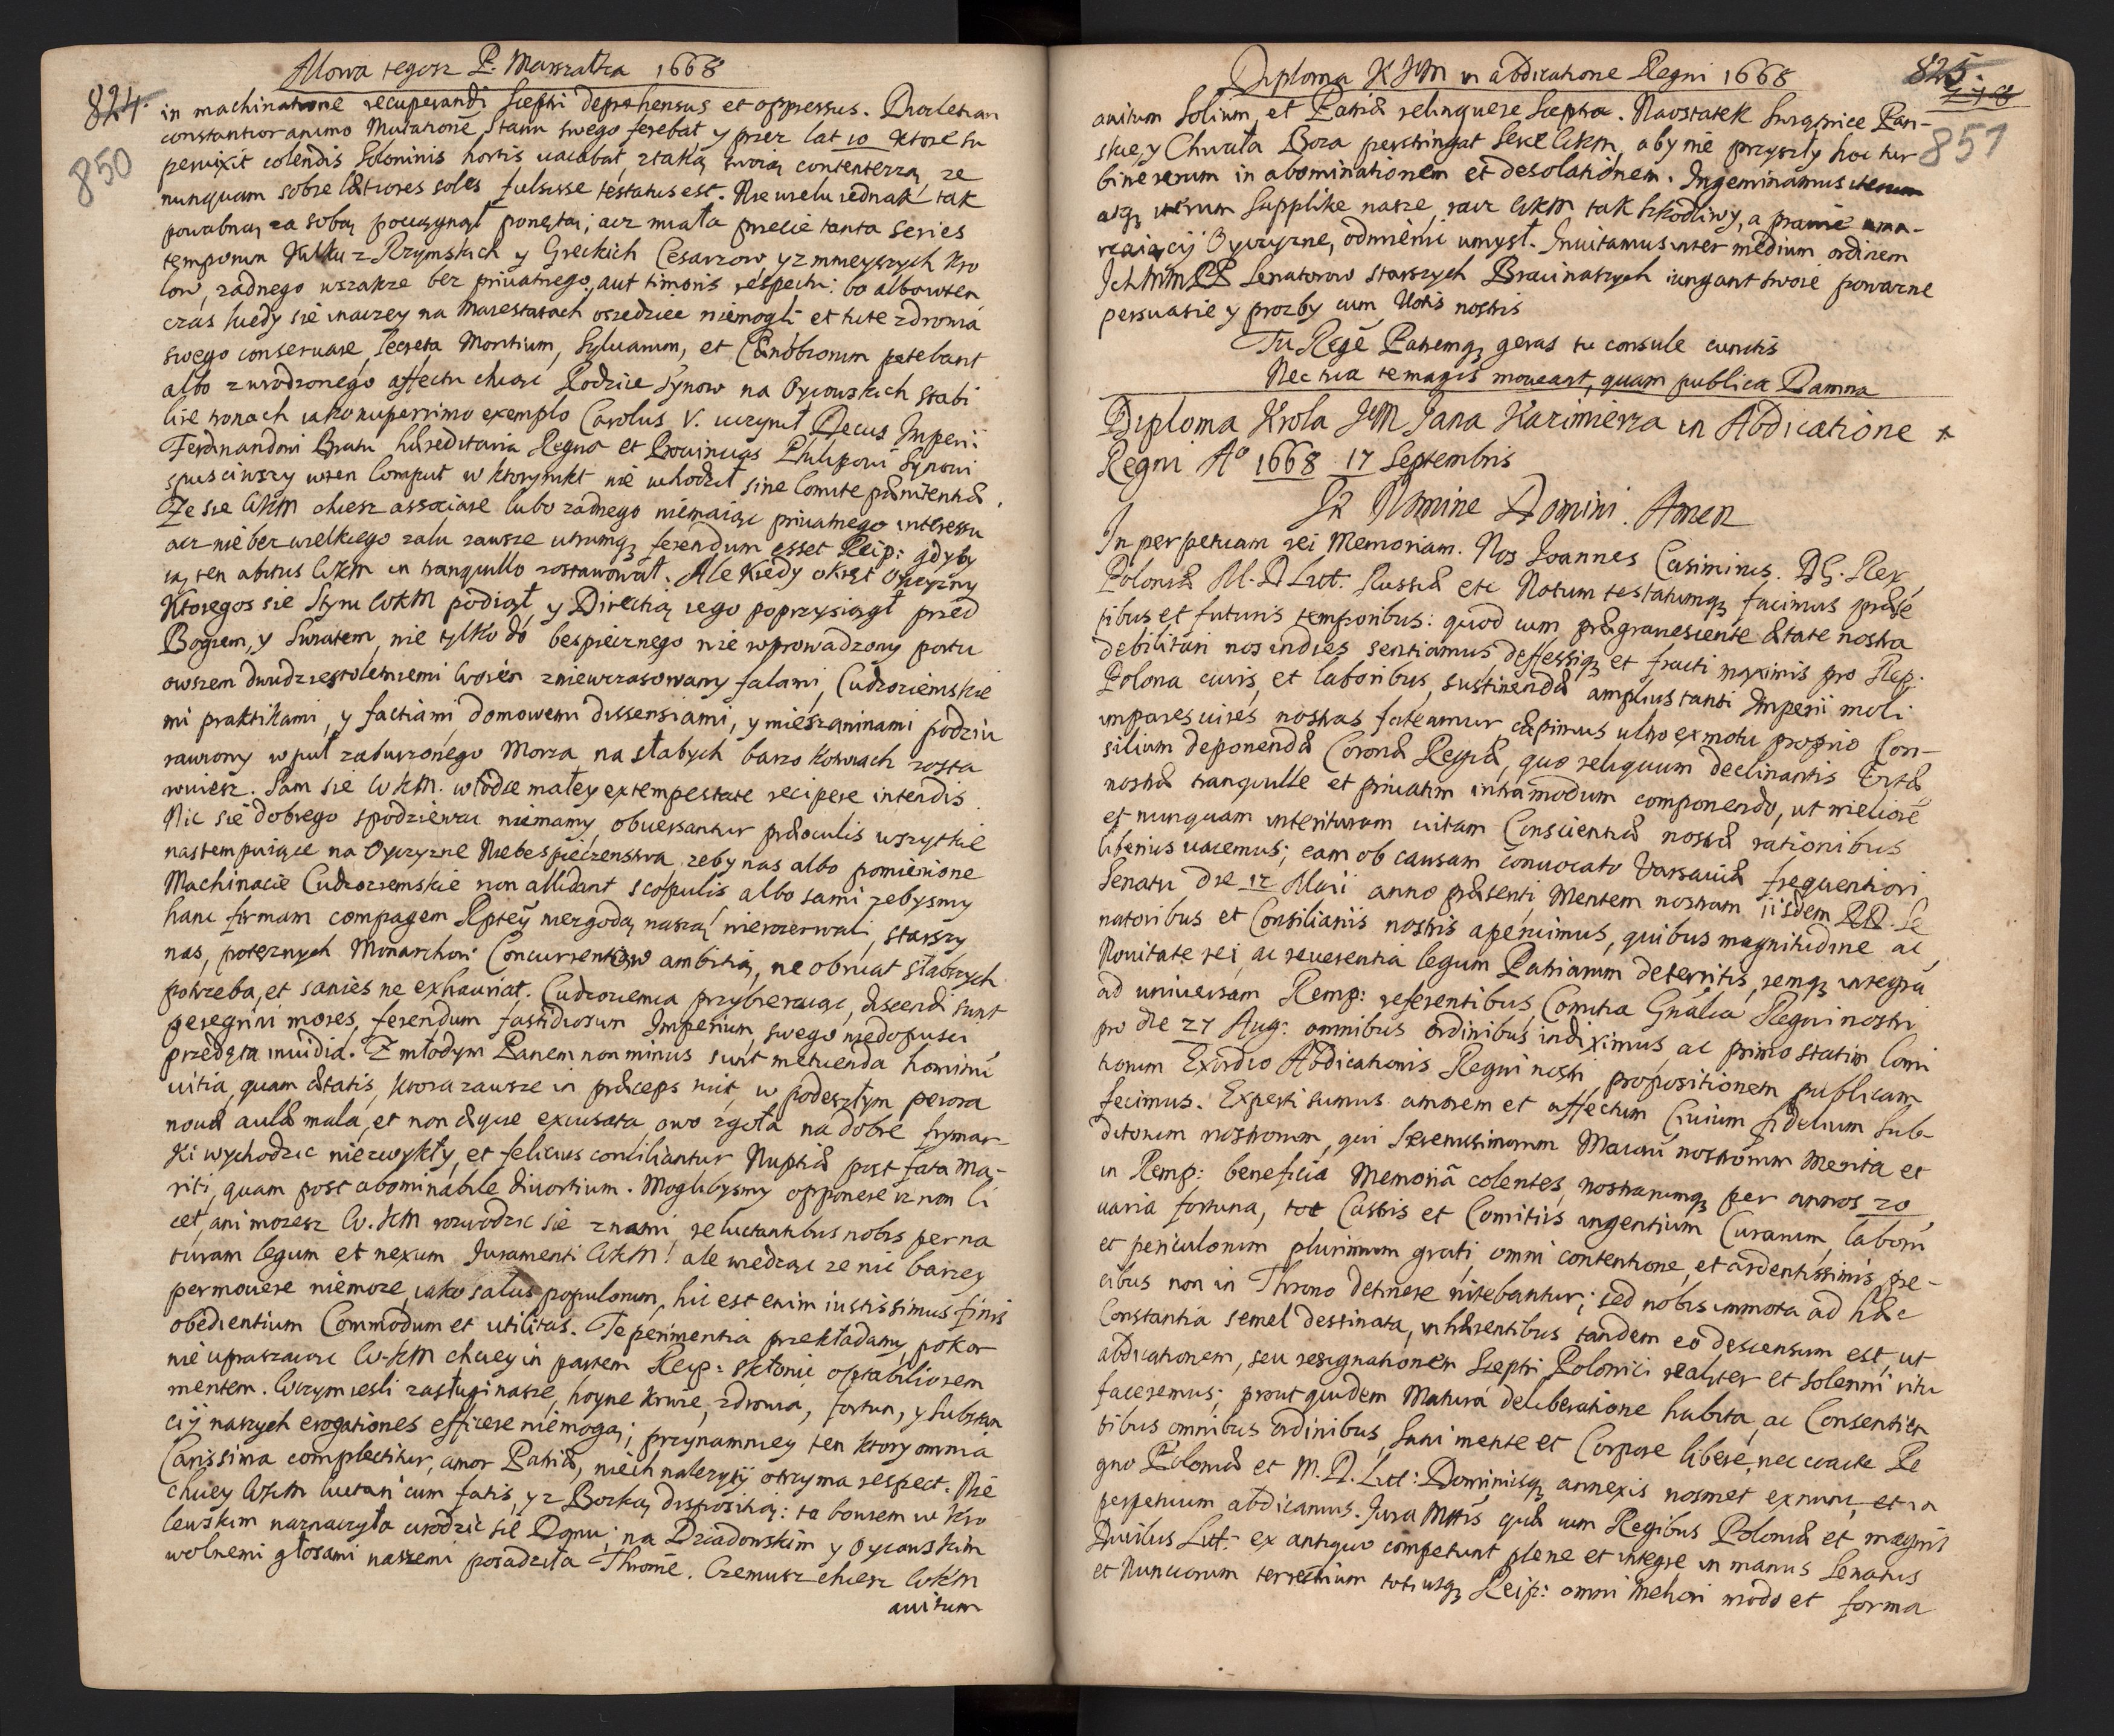 Mowa tegosz P. Marszałka 1668
824.
850
in machinatione recuperandi sceptri deprehensus et oppressus. Dioclecian
constantior animo Mutationē Stanu swego ferebat y przez lat 10 ktore su
pervixit colendis Soloninis hortis vacabat, ztaką swoią contenteczą, ze
nunquam sobie lætiores soles fulsisse testatus est. Nie wielu iednak tak
powabną za sobą pociągnął ponętą; acz miała przecie tanta series
temporum kilku z Rzymskich y Greckich Cesarzow, y z mnieyszych Kro
low, zadnego wszakze bez privatnego, aut timoris respectu: bo albo w ten
czas kiedy się inaczey na Maiestatach osiedziec niemogli et tute zdrowia
swego conservare, Secreta Montium, Sylvarum, et Cænobiorum petebant
albo z wrodzonego affectu chcąc Rodzice Synow na Oycowskich stabi
lire tronach iako nuperrimo exemplo Carolus V. uczynił Decus Imperii
Ferdinandowi Bratu hæreditaria Regna et Provincias Philipowi Synowi
spusciwszy w ten Comput w ktorym nikt nie wchodził sine Comite pænitentia.
Ze się WKM chcesz associare lubo zadnego niemaiąc privatnego interessu
acz nie bez wielkiego zalu zawsze utrumq; ferendum esset Reip: gdyby
ią ten abitus WKM in tranquillo zostawował. Ale kiedy okręt Oyczyzny
Ktoregos się Styru WKM podiął, y Directią iego poprzysiągł przed
Bogiem, y Swiatem, nie tylko do bespiecznego nie wprowadzony portu
owszem dwudziestoletniemi Woien zniewczasowany falami, Cudzoziemskie
mi praktikami, y factiami domowemi dissensiami, y mieszaninami podziu
rawiony w puł zaburzonego Morza, na słabych barzo kotwach zosta
wuiesz. Sam się WKM. w łodce małey ex tempestate recipere intendis.
Nic się dobrego spodziewac niemamy, obversantur præ oculis wszystkie
nastempuiące na Oyczyzne Niebespieczenstwa, zeby nas albo pomienione
Machinacie Cudzoziemskie non allidant scopulis albo sami zebysmy
hanc firmam compagem Rptey niezgodą naszą nierozerwali, starszy
nas, poteznych Monarchow Concurrentiow ambitia, ne obruat słabszych
potrzeba, et sanies ne exhauriat. Cudzoziemca przybieraiąc, discendi sunt
peregrini mores, ferendum fastidiosum Imperium, swego niedopusci
przedęta invidia. Z młodym Panem non minus sunt metuenda hominū
vitia, quam ætatis, ktora zawsze in præceps ruit, w podeszłym perosa
novæ aulæ mala, et non æque excusata, owo zgoła na dobre frymar-
ki wychodzic niezwykły, et felicius conciliantur Nuptiæ post fata Ma-
riti, quam post abominabile divortium. Moglibysmy opponere iz non li
cet, ani mozesz W.KM rozwodzic się z nami, reluctantibus nobis per na
turam legum et nexum Juramenti WKM! ale wiedząc ze nic barzey
permovere niemoze, iako salus populorum, hic est enim iustissimus finis
obedientium Commodum et utilitas. Te perimentia przekładamy, pokor
nie upraszaiąc W.KM chciey in partem Reip: skłonic optabiliorem
mentem. Wczym iesli zasługi nasze, hoyne krwie, zdrowia, fortun, y Substan
cij naszych erogationes efficere niemogą; przynamniey ten ktory omnia
Carissima complectitur, amor Patriæ, niech nalezyty otrzyma respect. Nie
chciey WKM luctari cum fatis, y z Boską dispositią: ta bowiem w Kro
lewskim naznaczyła urodzic się Domu, na Dziadowskim y Oycowskim
wolnemi głosami naszemi posadziła Thronie. Czemusz chcesz WKM
avitum
Diploma KJM in abdicatione Regni 1668
825.
851
avitum Solium, et Patriæ relinquere Sceptra. Naostatek Swiątnice Pan-
skie, y Chwała Boza perstringat serce WKM, aby nie przyszły hoc tur
bine rerum in abominationem et desolationem. Ingeminamus iterum
atq; iterum Supplike nasze, racz WKM tak szkodliwy, a prawie uma-
rzaiący Oyczyzne, odmienic umysł. Invitamus inter medium ordinem
Ich MM PP Senatorow starszych Braci naszych iungant swoie powazne
persuasie y prozby cum Votis nostris
Tu Regē Patremq; geras tu consule cunctis
Nec tua te magis moveant, quam publica Damna
Diploma Krola JM Jana Kazimierza in Abdicatione
Regni Aº 1668 17 Septembris
In Nomine Domini. Amen
In perpetuam rei Memoriam. Nos Joannes Casimirus. D.G. Rex
Poloniæ M.D Lit. Russiæ etc Notum testatumq; facimus præse
tibus et futuris temporibus: quod cum prægravesciente ætate nostra
debilitari nos indies sentiamus deffessiq; et fracti maximis pro Rep:
Polona curis, et laboribus, sustinendæ amplius tanti Imperii moli
impares vires nostras fateamur, cæpimus ultro ex motu proprio Con-
silium deponendæ Coronæ Regiæ, quo reliquum declinantis Vitæ
nostræ tranquille et privatim intra modum componendo, ut meliorē
et nunquam interituram vitam Conscientiæ nostræ rationibus
liberius vacemus; eam ob causam convocato Varsaviæ frequentiori
Senatu die 12 Maii anno præsenti Mentem nostram iisdem DD. Se
natoribus et Consiliariis nostris aperuimus, quibus magnitudine ac
Novitate rei, ac reverentia legum Patriarum deterritis, remq; integrā
ad universam Remp: referentibus, Comitia Gnālia Regni nostri
pro die 27 Aug: omnibus ordinibus indiximus, ac primo statim Comi
tiorum Exordio Abdicationis Regni nostri propositionem publicam
fecimus. Experti sumus amorem et affectum Civium fidelium Sub-
ditorum nostrorum, qui Serenissimorum Maiorū nostrorum Merita et
in Remp: beneficia Memoriā colentes, nostrarumq; per annos 20
varia fortuna, tot Castris et Comitiis ingentium Curarum, laborū
et periculorum plurimum grati, omni contentione, et ardentissimis pre-
cibus non in Throno detinere nitebantur; sed nobis immota ad hæc
Constantia semel destinata, inhærentibus tandem eo descensum est, ut
abdicationem, seu resignationem Sceptri Polonici realiter et solenni ritu
faceremus; prout quidem Matura deliberatione habita, ac Consentien
tibus omnibus ordinibus, Sani mente et Corpore libere, nec coacte Re
gno Poloniæ et M.D. Litt: Dominiisq; annexis nosmet ex nunc, et in
perpetuum abdicamus. Jura Mttīs quæ cum Regibus Poloniæ et magnis
Ducibus Litt: ex antiquo competunt plene et integre in manus Senatus
et Nunciorum terrestrium totiusq; Reip: omni meliori modo et forma